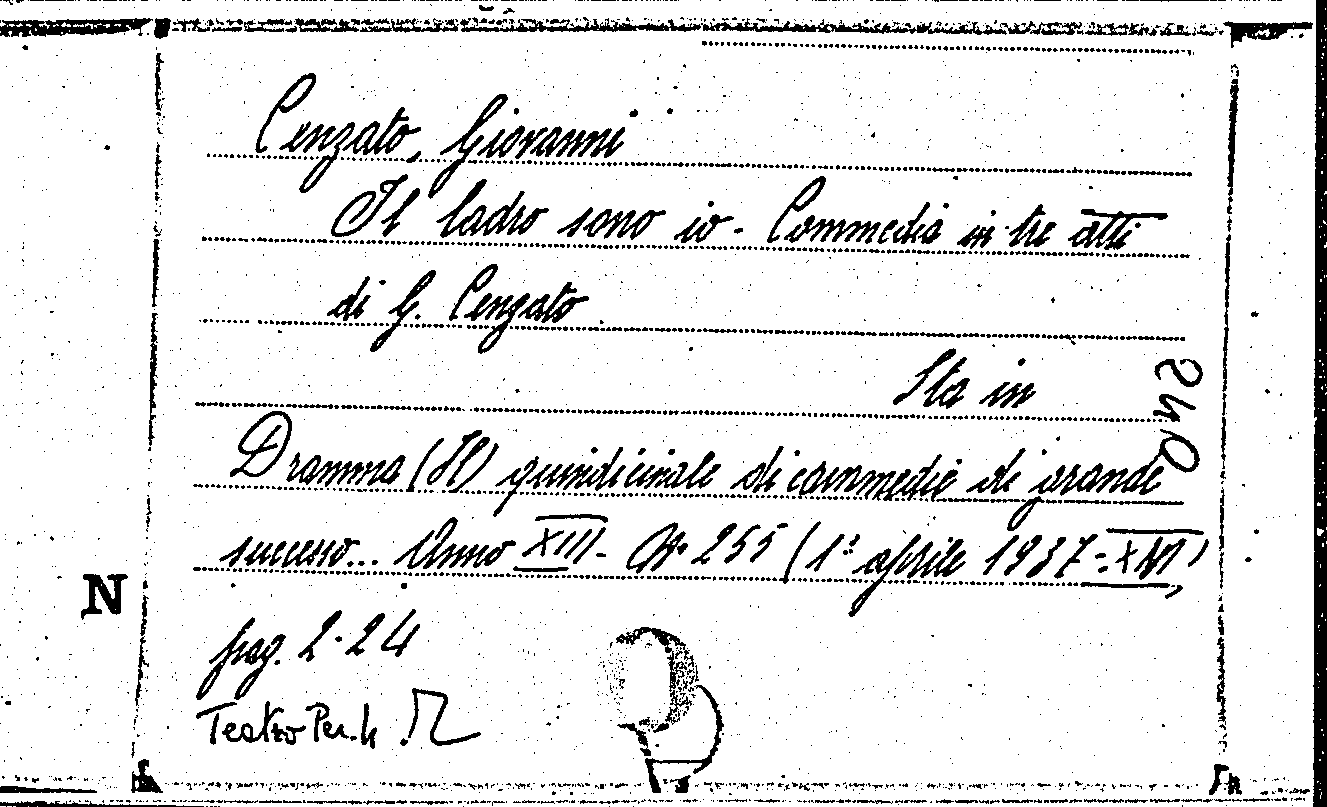 Cenzato, Giovanni
Il ladro sono io - Commedia in tre atti
di G. Cenzato
Sta in
Dramma (Il) quindicinale di commedie di grande
successo... Anno XIII - N° 255 (1° aprile 1937-XVI)
pag. 2-24
N
Teatro Per.